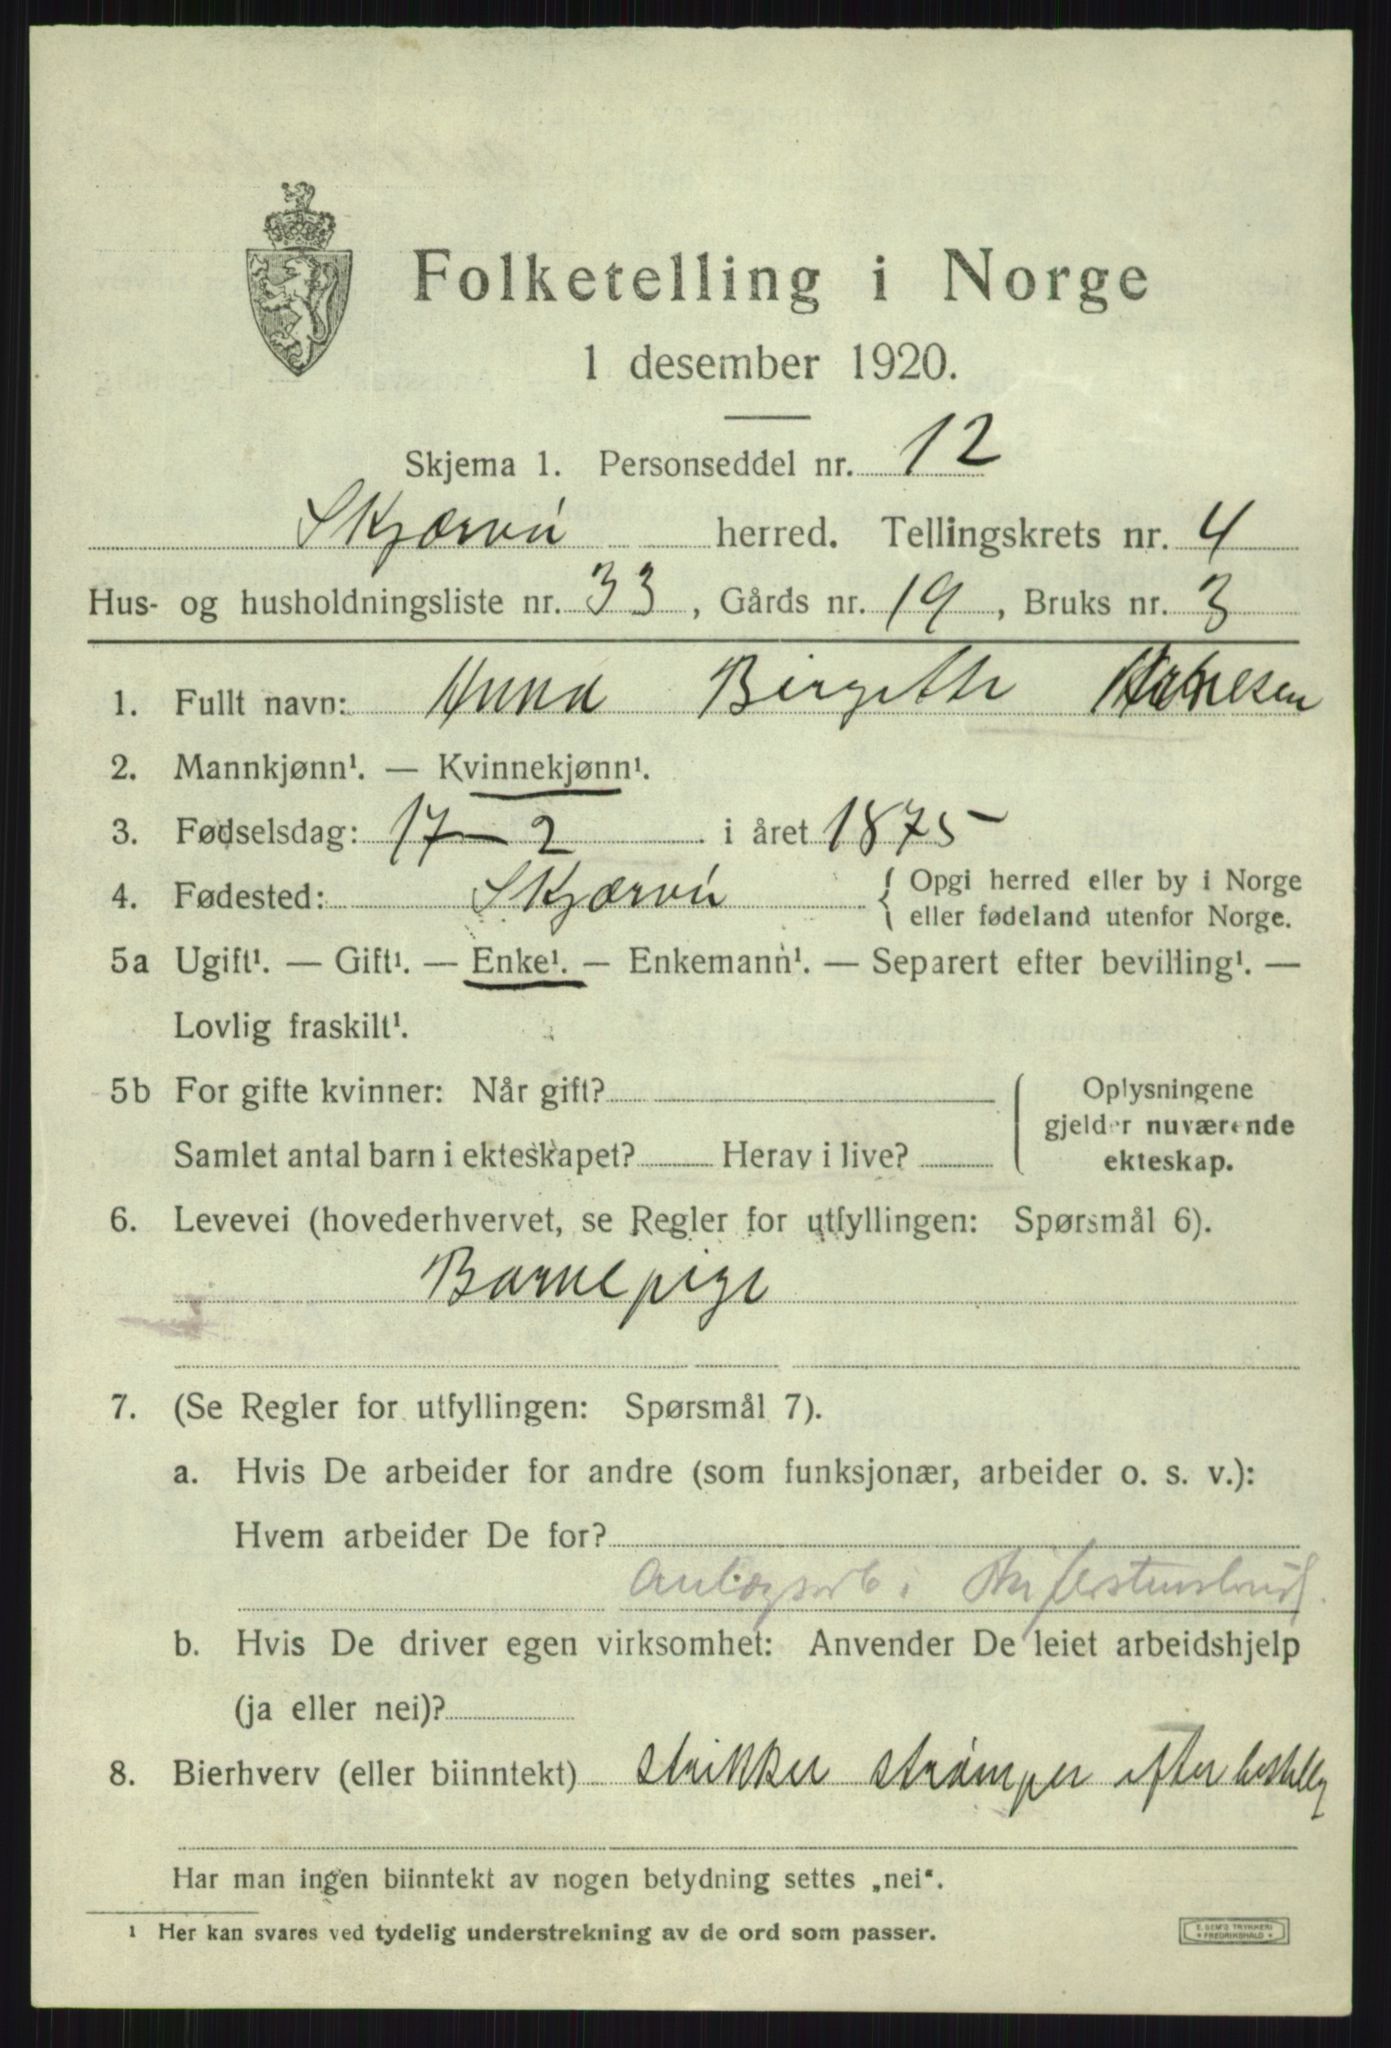 Folketelling i Norge
1 desember 1920.
Skjema 1. Personseddel nr. 12
Skjærvö herred. Tellingskrets nr. 4
Hus- og husholdningsliste nr. 33, Gårds nr. 19, Bruks nr. 3
1. Fullt navn: Anna Birgitte
2. Mannkjønn¹. — Kvinnekjønn¹.
3. Fødselsdag: 17-2 i året 1875
4. Fødested: Skjærvö { Opgi herred eller by i Norge
eller fødeland utenfor Norge.
5a Ugift¹. — Gift¹. — Enke¹. — Enkemann¹. — Separert efter bevilling¹. —
Lovlig fraskilt¹.
5b For gifte kvinner: Når gift?
Samlet antal barn i ekteskapet? Herav i live?
Oplysningene
gjelder nuværende
ekteskap.
6. Levevei (hovederhvervet, se Regler for utfyllingen: Spørsmål 6).
Barnepige
7. (Se Regler for utfyllingen: Spørsmål 7).
a. Hvis De arbeider for andre (som funksjonær, arbeider o. s. v.):
Hvem arbeider De for?
b. Hvis De driver egen virksomhet: Anvender De leiet arbeidshjelp
(ja eller nei)?
8. Bierhverv (eller biinntekt) strikker strømper efter
Har man ingen biinntekt av nogen betydning settes „nei“.
¹ Her kan svares ved tydelig understrekning av de ord som passer.
E. SEM'S TRYKKERI
* FREDRIKSHALD *